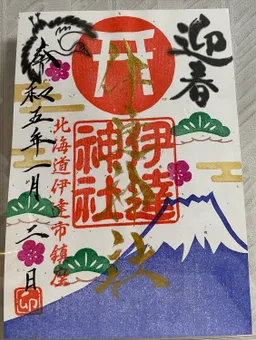 迎春
伊達神社
伊達
神社
北海道伊達市鎮座
令和五年一月二日
卯